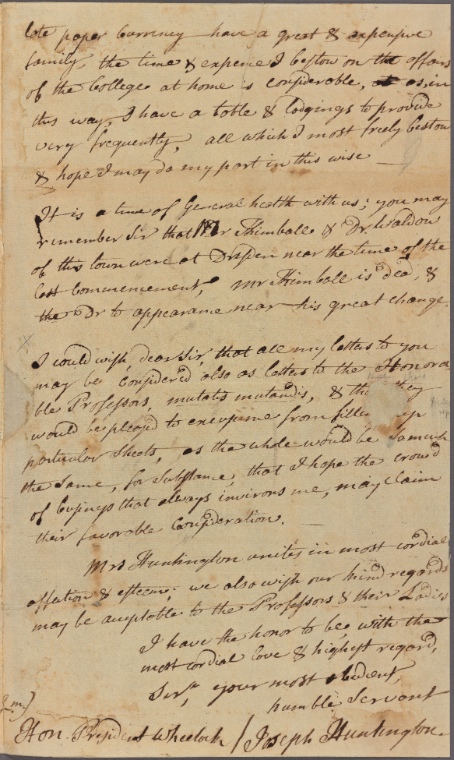 late paper Currency have a great & expensive
family, the time & expence I bestow on the affairs
of the College at home is considerable, as in
this way, I have a table & lodgings to provide
very frequently, all which I most freely bestow
& hope I may do my part in this wise
It is a time of General health with us; you may
remember Sir that Mr Kimball & Dr. Waldow
of this town were at Dresden near the time of the
last Commencement, Mr Kimball is dead, &
the Dr to appearance near his great change.
I could wish, dear Sir, that all my letters to you
may be Considered also as letters to the Honora
ble Professors, mutatis mutandis, & that they
would be pleased to excuse me from filling up
particular Sheets, as the whole would be So much
the Same, for Substance, that I hope the crowd
of business that always invirons me, may claim
their favorable Consideration.
Mrs Huntington unites in most cordial
affection & esteem; we also wish our kind regards
may be acceptable to the Professors & their Ladies
I have the honor to be, with the
most cordial love & highest regard,
Sir, your most obedient,
humble Servant
Hon. President Wheelock / Joseph Huntington.